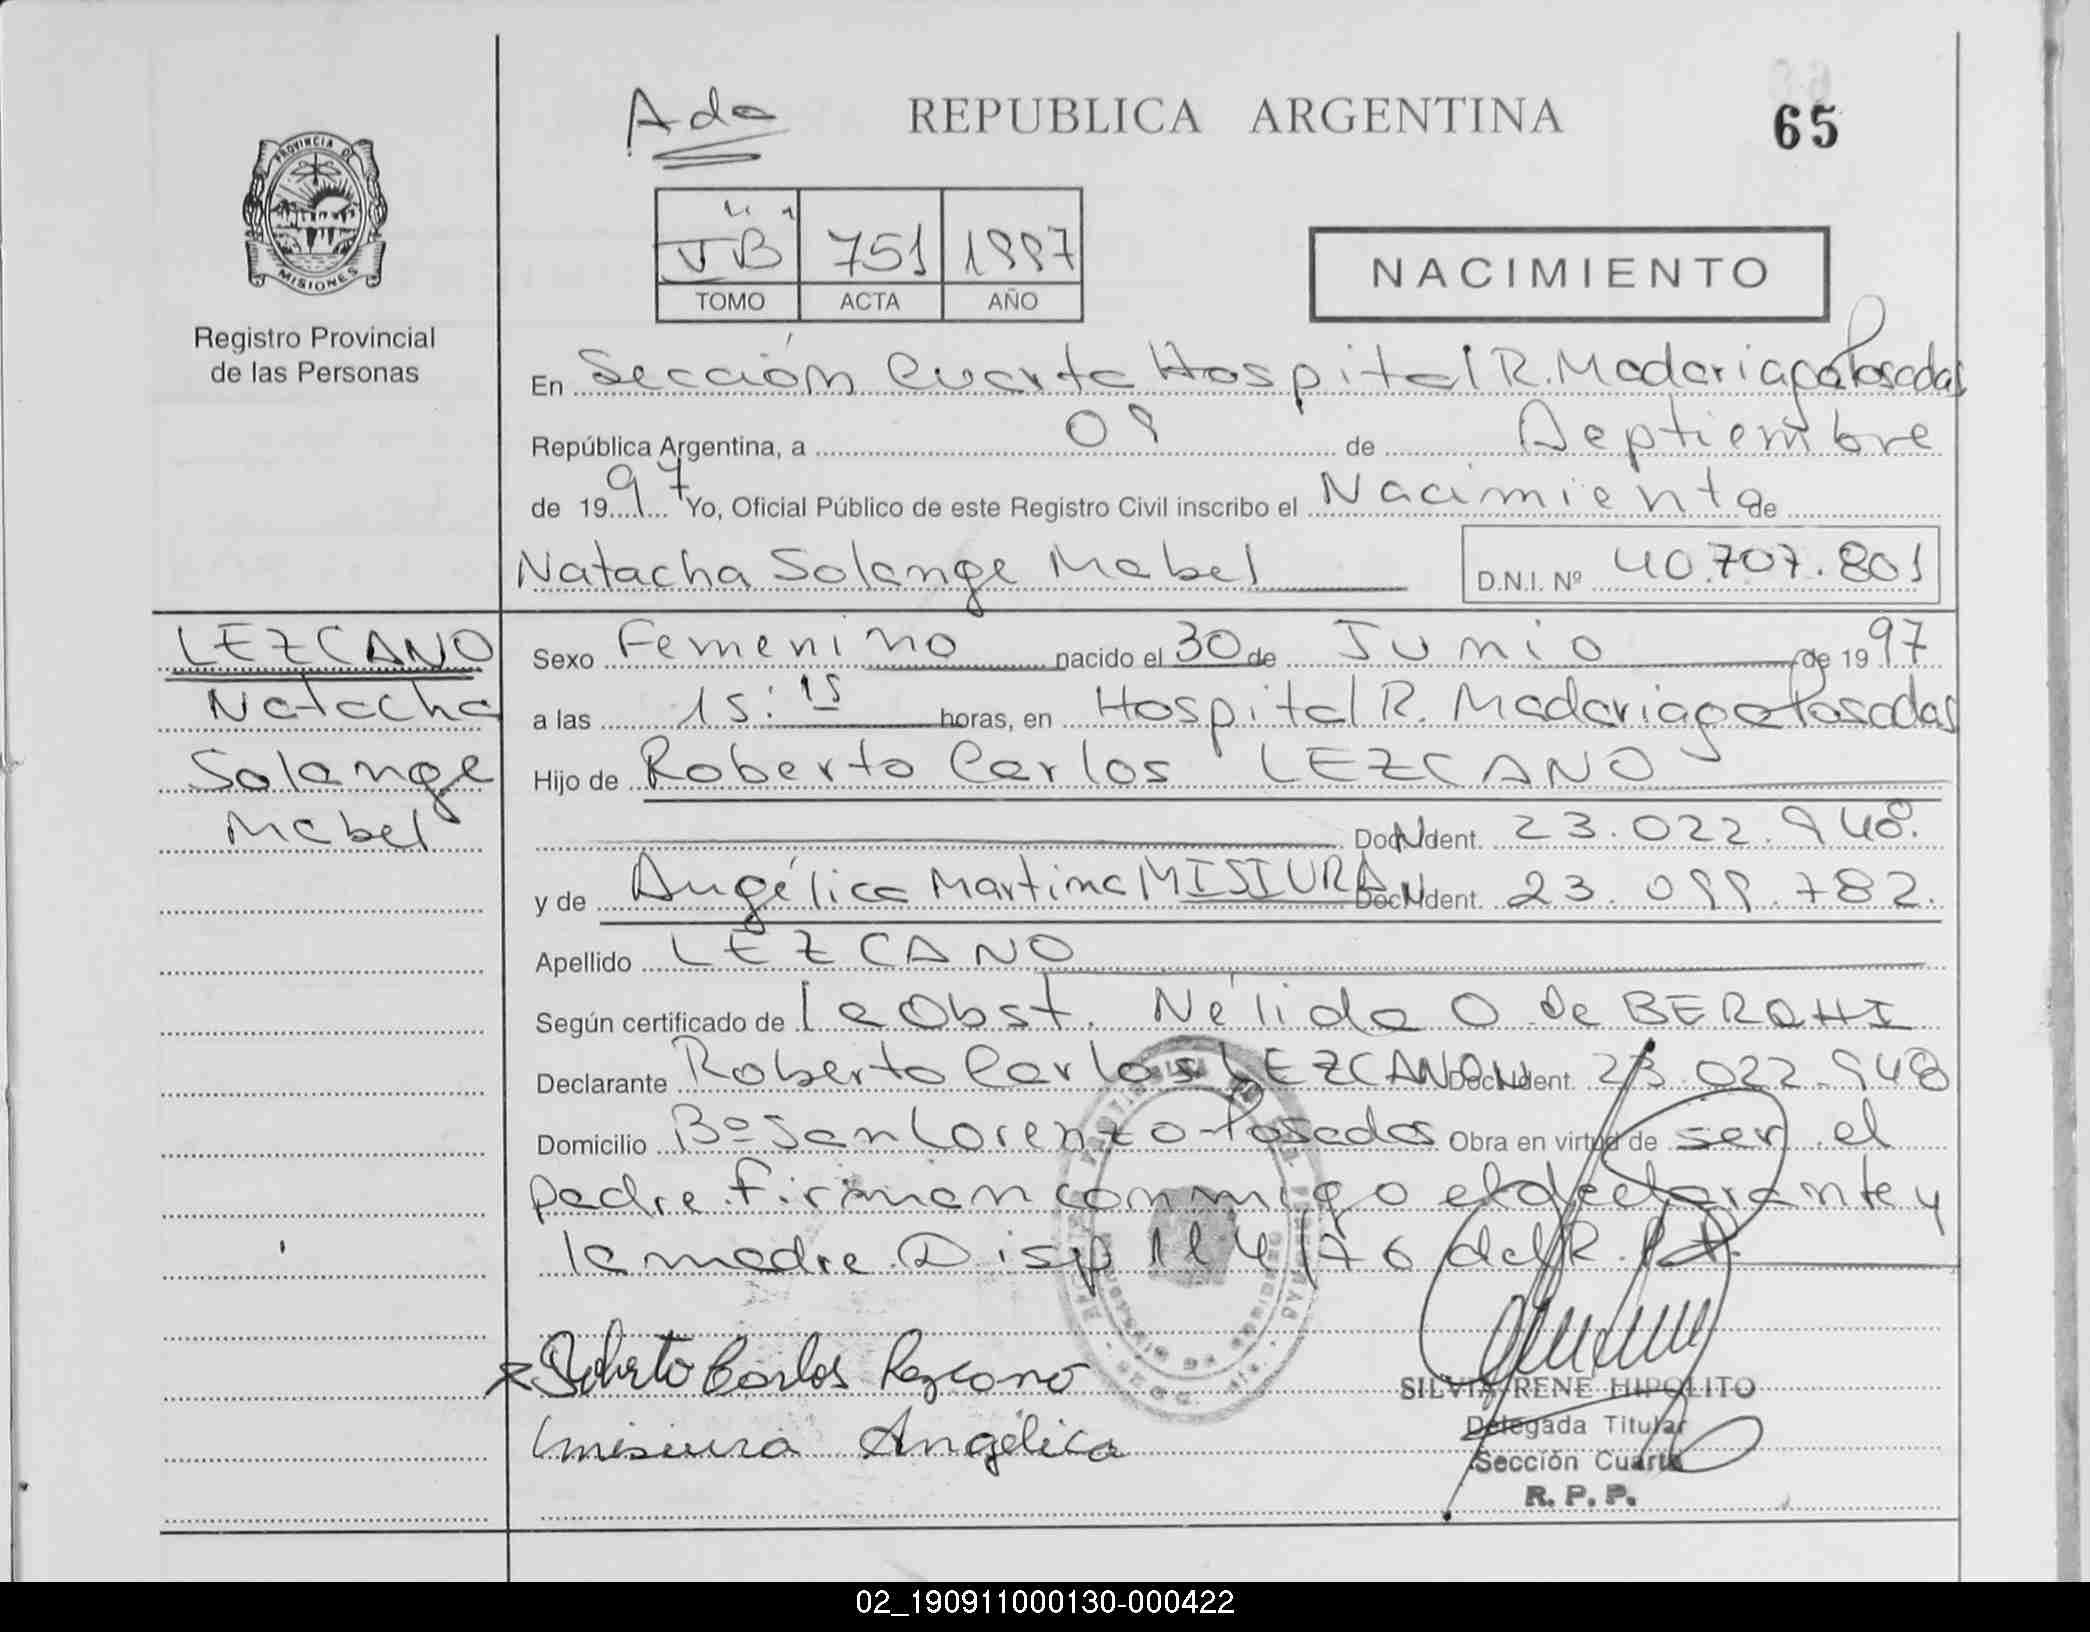 Ada
REPUBLICA ARGENTINA
65
PROVINCIA DE
MISIONES
Registro Provincial
de las Personas
"B" 751 1997
TOMO ACTA AÑO
NACIMIENTO
En Sección Cuarta Hospital R. Madariaga Posadas
República Argentina, a 09 de Septiembre
de 1997 Yo, Oficial Público de este Registro Civil inscribo el Nacimiento de
Natacha Solange Mabel D.N.I. Nº 40.707.801
LEZCANO
Natacha
Solange
Mabel
Sexo Femenino nacido el 30 de Junio de 1997
a las 15:15 horas, en Hospital R. Madariaga Posadas
Hijo de Roberto Carlos LEZCANO
Doc N Ident. 23.022.948.
y de Angélica Martina MISIURA Doc N Ident. 23.099.782.
Apellido LEZCANO
Según certificado de la Obst. Nélida O de
Declarante Roberto Carlos LEZCANO Doc N Ident. 23.022.948
Domicilio Bº San Lorenzo-Posadas Obra en virtud de ser el
padre. firman conmigo el declarante y
la madre. Disp 114/76 del R.P.P.
Roberto Carlos Lezcano
misiura Angélica
SILVIA RENE HIPOLITO
Delegada Titular
Sección Cuarta
R. P. P.
02_190911000130-000422